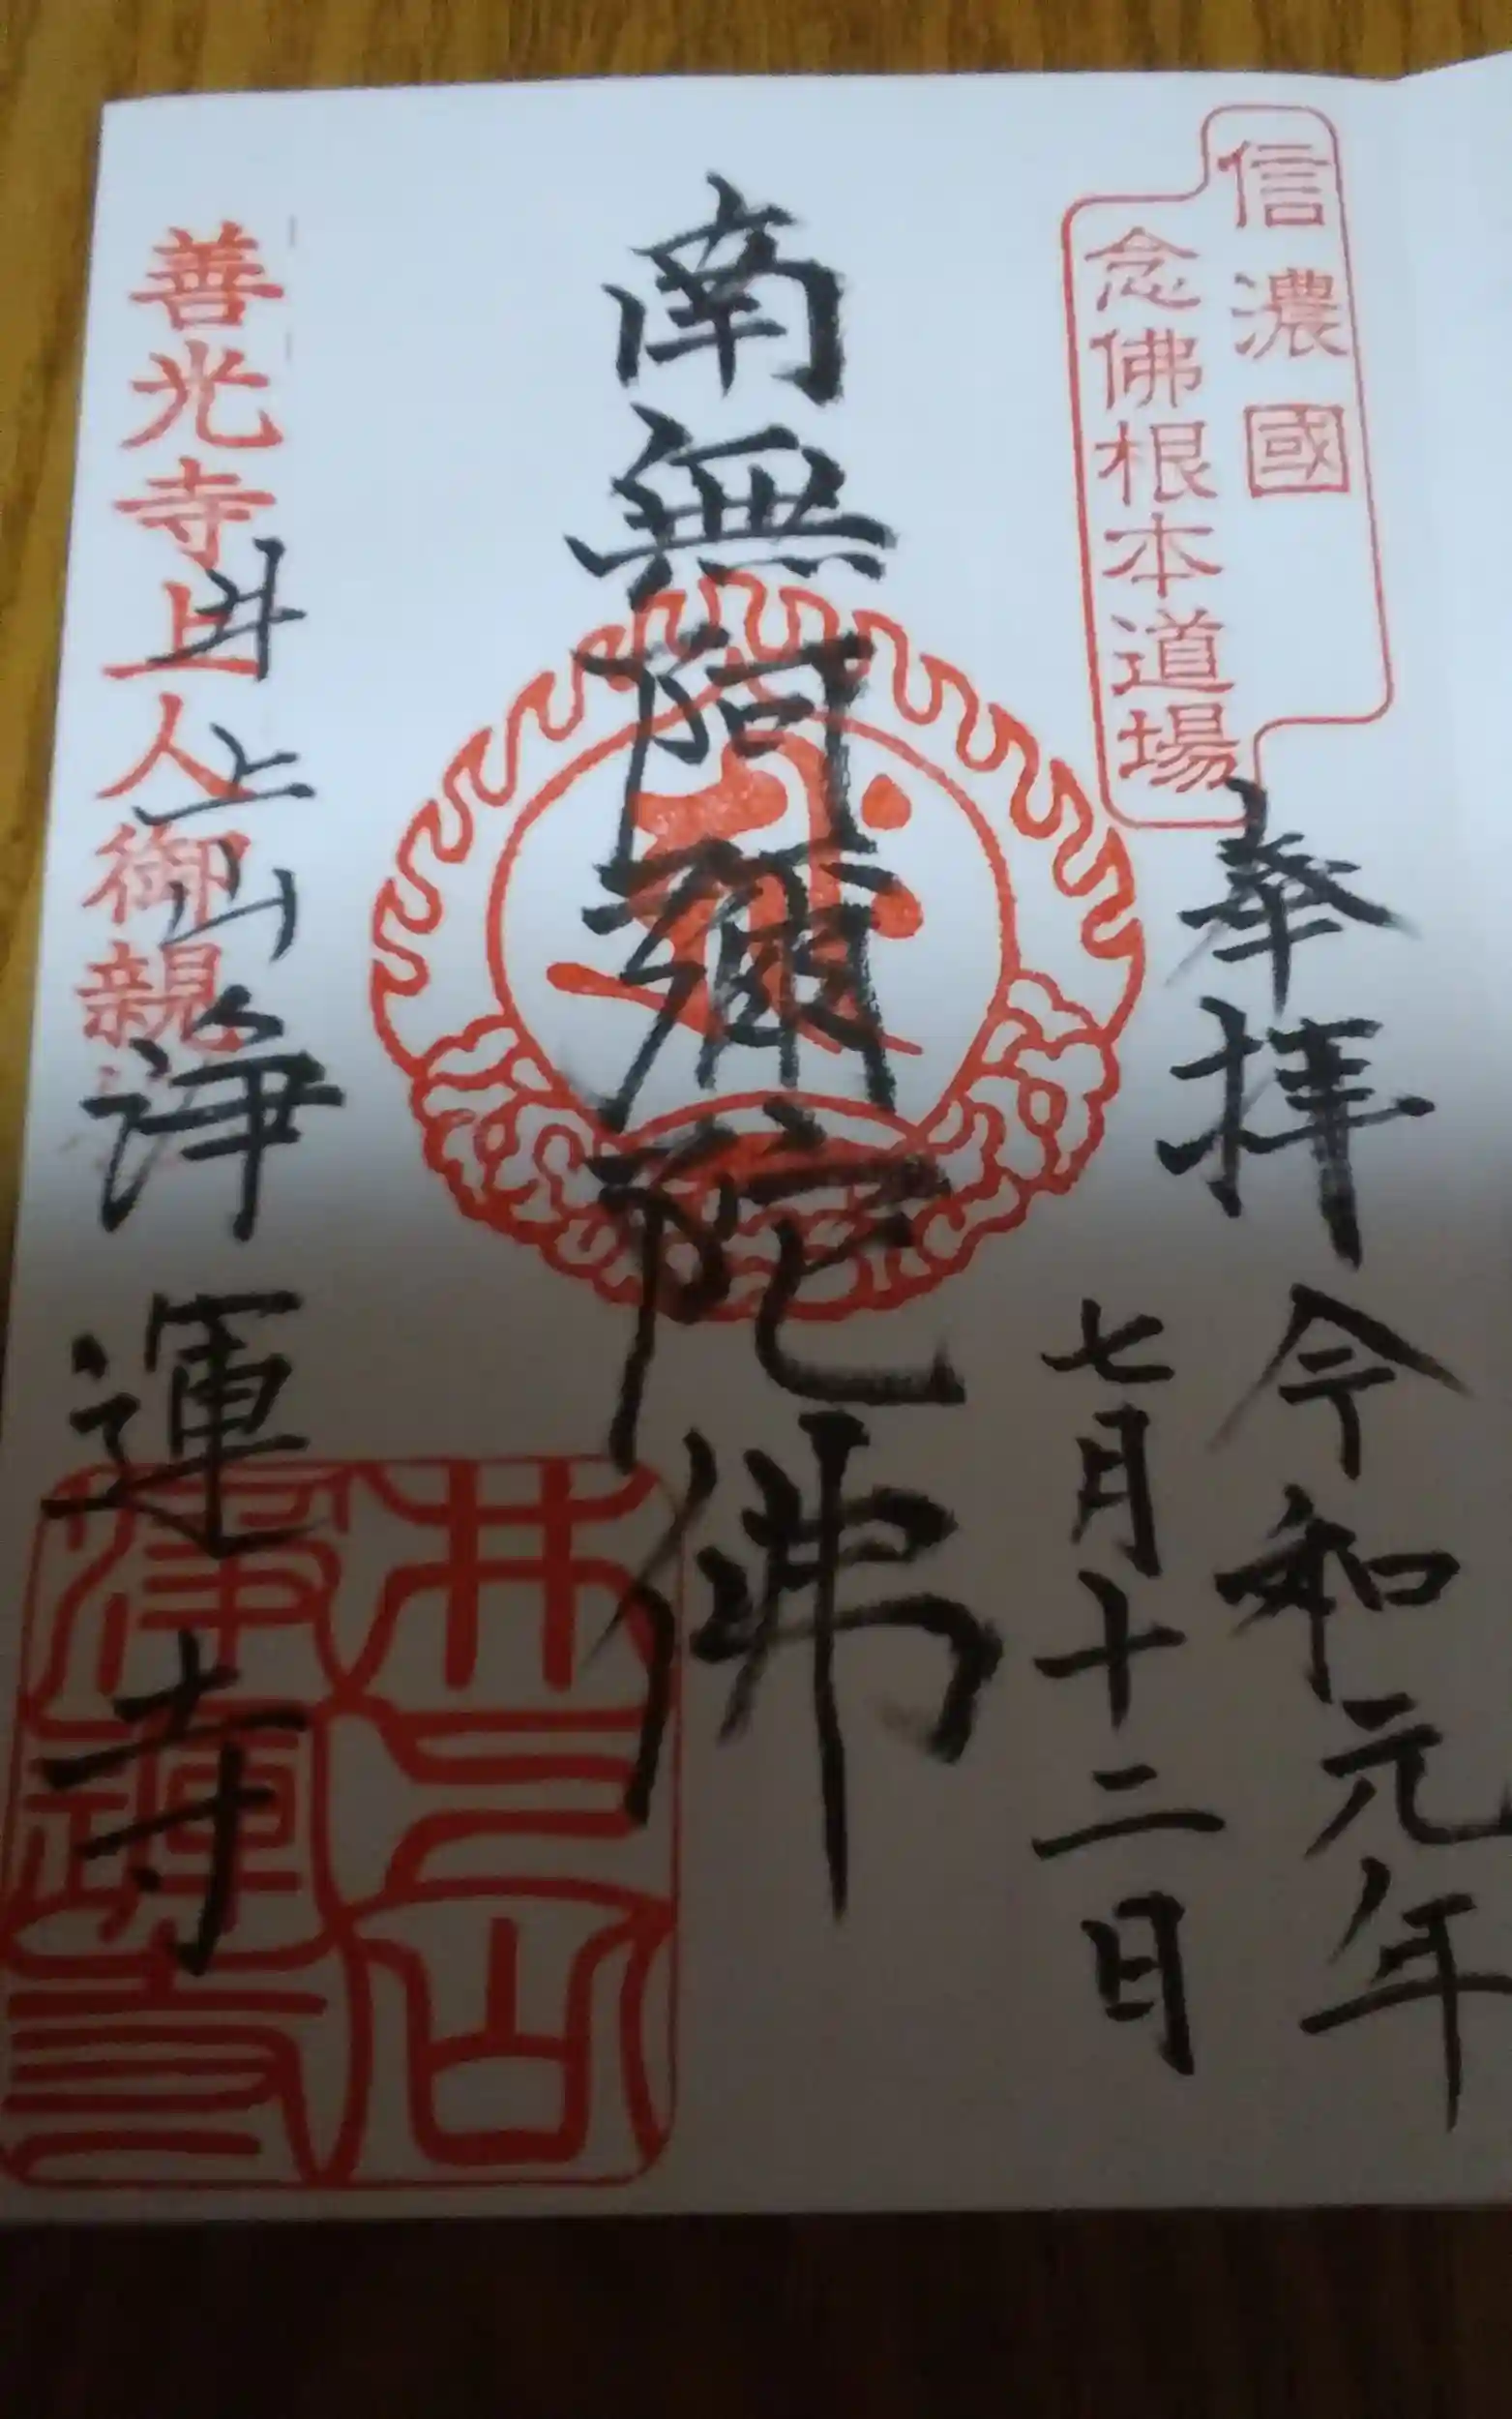 信濃國
念佛根本道場
奉拝
令和元年
七月十二日
南無阿彌陀佛
善光寺上人御親
井上山
浄運寺
井上山
浄運寺